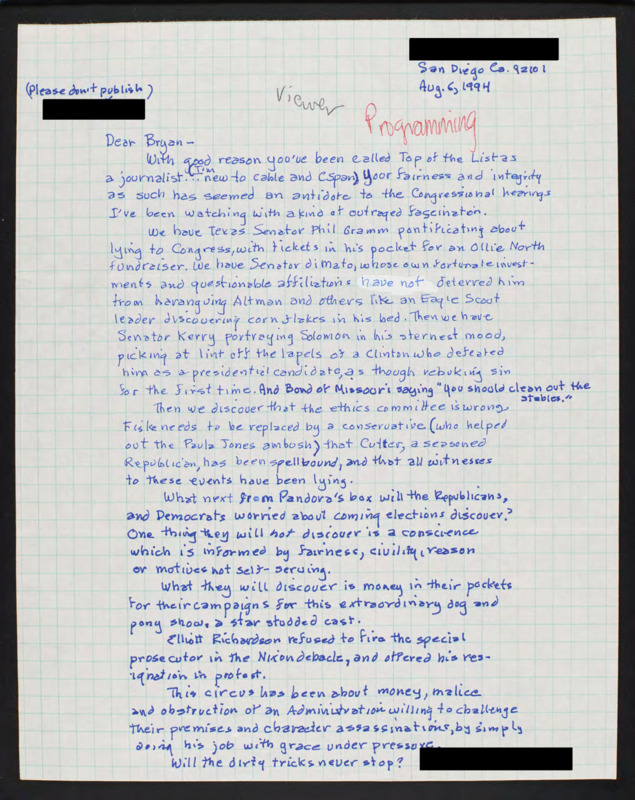 San Diego Ca. 92101
(Please don't publish)
Aug. 6, 1994
Viewer
Programming
Dear Bryan -
With good reason you've been called Top of the List as
a journalist. (I'm new to cable and Cspan) Your fairness and integrity
as such has seemed an antidote to the Congressional hearings
I've been watching with a kind of outraged fascinaton.
We have Texas Senator Phil Gramm pontificating about
lying to Congress, with tickets in his pocket for an Ollie North
fundraiser. We have Senator diMato, whose own fortunate invest-
ments and questionable affiliations have not deterred him
from haranguing Altman and others like an Eagle Scout
leader discovering corn flakes in his bed. Then we have
Senator Kerry portraying Solomon in his sternest mood,
picking at lint off the lapels of a Clinton who defeated
him as a presidential candidate, as though rebuking sin
for the first time. And Bond of Missouri saying "You should clean out the
stables."
Then we discover that the ethics committee is wrong,
Fiske needs to be replaced by a conservative (who helped
out the Paula Jones ambush) that Cutler, a seasoned
Republican, has been spellbound, and that all witnesses
to these events have been lying.
What next from Pandora's box will the Republicans,
and Democrats worried about coming elections discover?
One thing they will not discover is a conscience
which is informed by fairness, civility, reason
or motives not self-serving.
What they will discover is money in their pockets
for their campaigns for this extraordinary dog and
pony show, a star studded cast.
Elliott Richardson refused to fire the special
prosecutor in the Nixon debacle, and offered his res-
ignation in protest.
This circus has been about money, malice
and obstruction of an Administration willing to challenge
their premises and character assassinations, by simply
doing his job with grace under pressure.
Will the dirty tricks never stop?